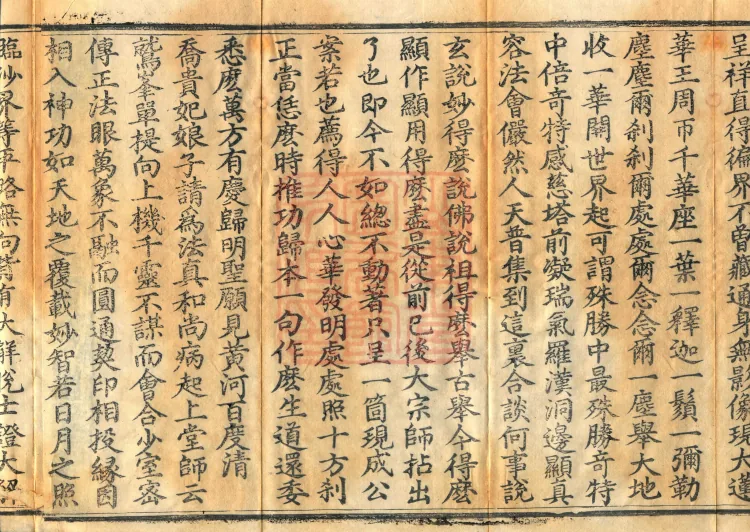 呈祥直得徧界不曾藏通身無影像現大蓮
華王周帀千華座一葉一釋迦一鬚一彌勒
塵塵爾刹刹爾處處爾念念爾一塵舉大地
收一華開世界起可謂殊勝中最殊勝奇特
中倍奇特感慈塔前凝瑞氣羅漢洞邊顯真
容法會儼然人天普集到這裏合談何事說
玄說妙得麽說佛說祖得麽舉古舉今得麽
顯作顯用得麽盡是從前已後大宗師拈出
了也即今不如總不動著只呈一箇現成公
案若也薦得人人心華發明處處照十方刹
正當恁麽時推功歸本一句作麽生道還委
悉麽萬方有慶歸明聖願見黃河百度清
喬貴妃娘子請爲法真和尚病起上堂師云
鷲峯單提向上機千靈不謀而會合少室密
傳正法眼萬象不融而圓通契印相投緣因
相入神功如天地之覆載妙智若日月之照
臨沙界等平略無向背有大解脫士證大